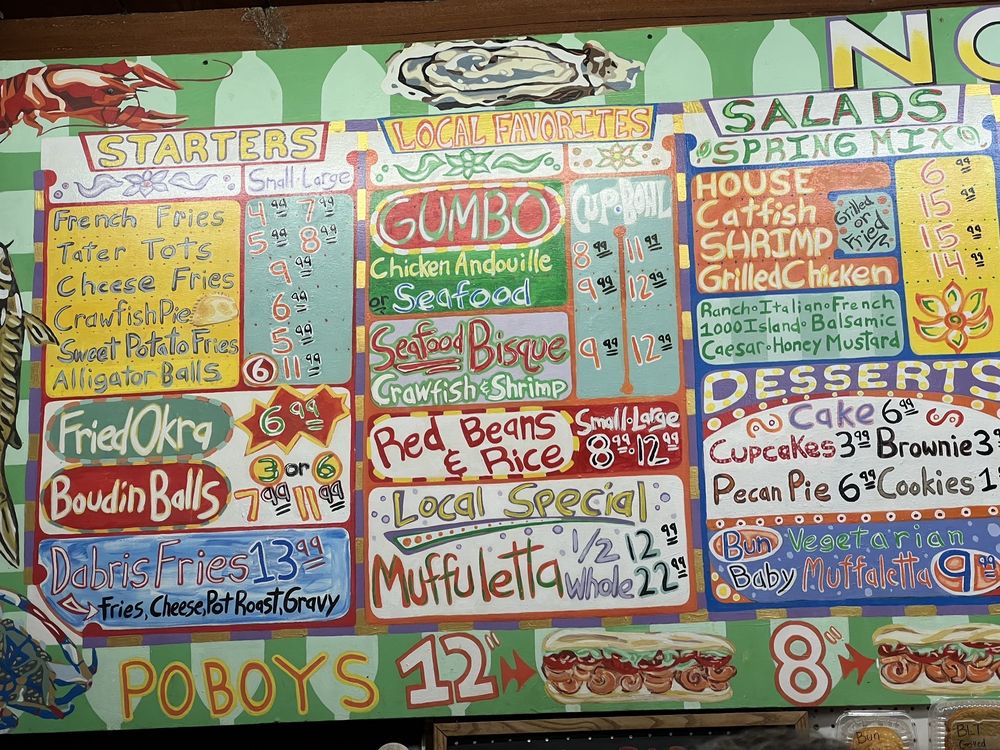 NO
STARTERS
Small•Large
French Fries 4.99 7.99
Tater Tots 5.99 8.99
Cheese Fries 9.99
Crawfish Pie 6.99
Sweet Potato Fries 5.99
Alligator Balls 6 11.99
Fried Okra 6.99
Boudin Balls 3 or 6
7.99 11.99
Dabris Fries 13.99
Fries, Cheese, Pot Roast, Gravy
LOCAL FAVORITES
GUMBO CUP•BOWL
Chicken Andouille 8.99 11.99
or Seafood 9.99 12.99
Seafood Bisque 9.99 12.99
Crawfish & Shrimp
Red Beans & Rice
Small•Large
8.99•12.99
Local Special
Muffuletta
1/2 12.99
Whole 22.99
SALADS
SPRING MIX
HOUSE 6.99
Catfish 15.99
SHRIMP 15.99
Grilled or Fried
Grilled Chicken 14.99
Ranch•Italian•French
1000 Island•Balsamic
Caesar•Honey Mustard
DESSERTS
Cake 6.99
Cupcakes 3.99 Brownie 3
Pecan Pie 6.99 Cookies 1
Bun Vegetarian
Baby Muffaletta 9.99
POBOYS 12" 8"
Bun
BLT